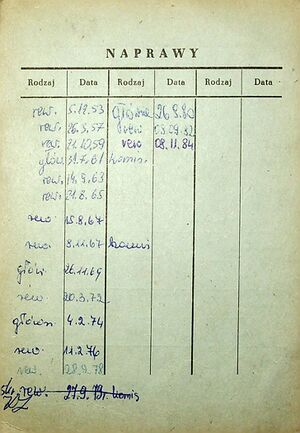 NAPRAWY
Rodzaj Data Rodzaj Data Rodzaj Data
rew. 5.12.53 główna 26.9.80
rew. 26.5.57 rew 03.09.82
rew. 21.10.59 rew 08.11.84
głów 31.7.61 komis.
rew. 19.9.63
rew. 21.8.65
rew 15.8.67
rew. 8.11.67 komis
głów. 26.11.69
rew 20.3.72
główn. 4.2.74
rew. 11.2.76
rew. 28.9.78
rew. 27.9.79. komis